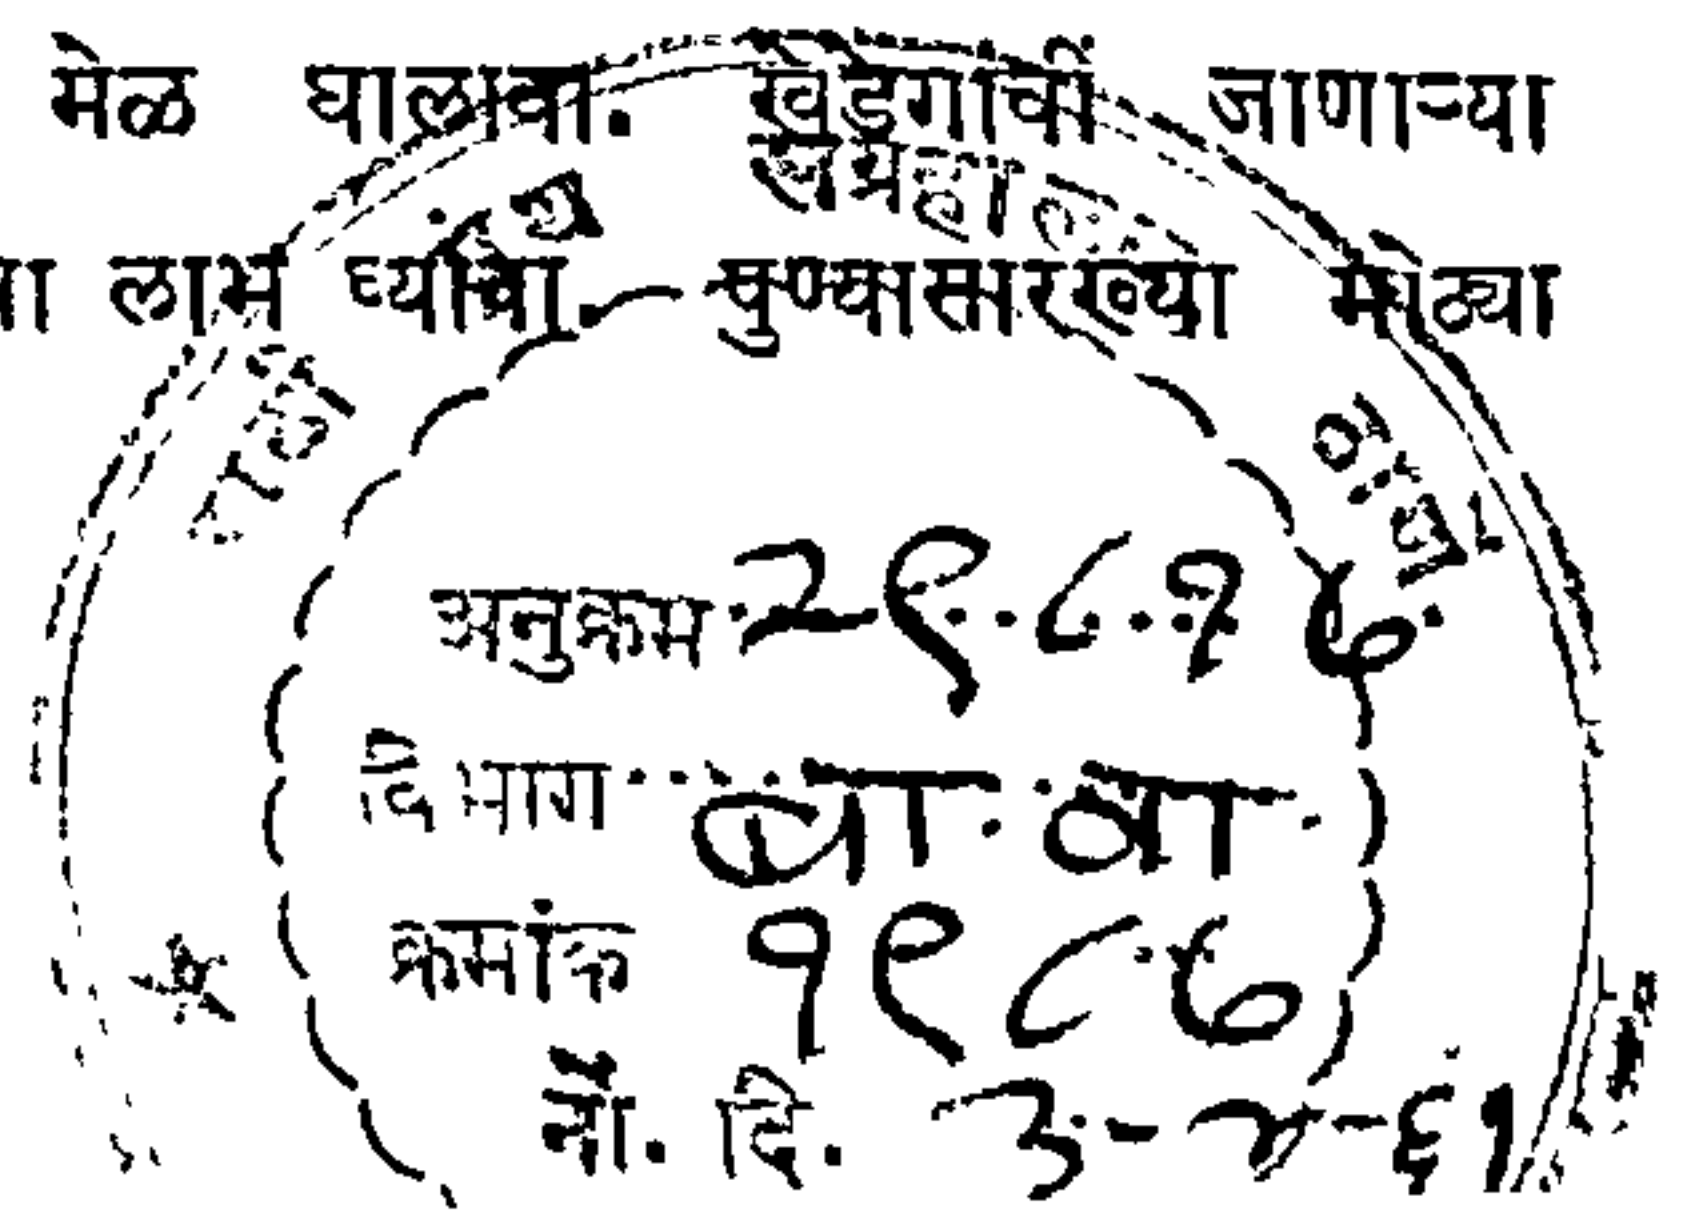 मेळ घालावा. खेडेगावीं जाणाऱ्या
लाभ घ्यावा. पुण्यासारख्या मोठ्या
मराठी ग्रंथ संग्रहालय ठाणे
अनुक्रम २९८१७
विभाग
क्रमांक १९८७
नों. दि. ३-४-६१